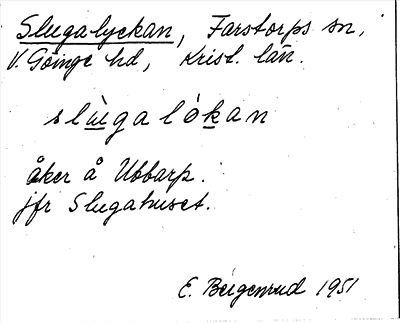 Slugalyckan, Farstorps sn,
V. Göinge hd, Krist. län.
slùgalókan
åker å Ubbarp.
jfr Slugahuset.
E. Bergemud 1951